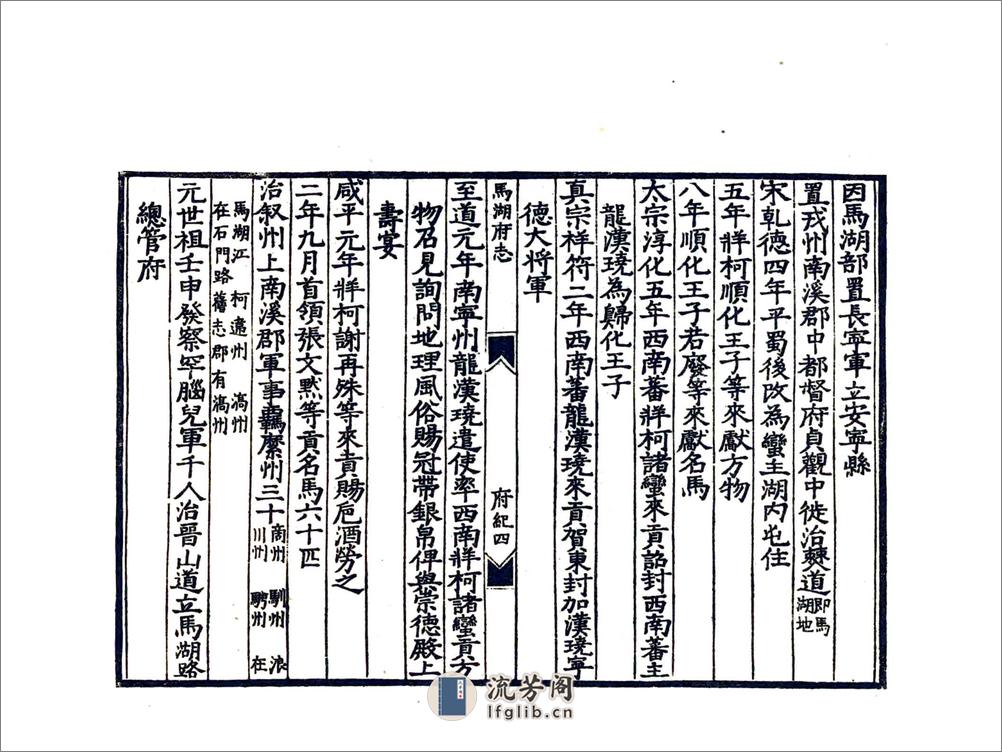 因馬湖部置長寧軍立安寧縣
置戎州南溪郡中都督府貞觀中徙治僰道即馬湖地
宋乾德四年平蜀後改為蠻主湖內屯住
五年牂柯順化王子等來獻方物
八年順化王子若廢等來獻名馬
太宗淳化五年西南蕃牂柯諸蠻來貢詔封西南蕃主
龍漢𤩊為歸化王子
真宗祥符二年西南蕃龍漢𤩊來貢賀東封加漢𤩊寧
德大將軍
馬湖府志
府紀四
至道元年南寧州龍漢𤩊遣使率西南牂柯諸蠻貢方
物召見詢問地理風俗賜冠帶銀帛俾與崇德殿上
壽宴
咸平元年牂柯謝再殊等來貢賜巵酒勞之
二年九月首領張文黙等貢名馬六十匹
治叙州上南溪郡軍事羈縻州三十商州 馴州 浪川州 騁州 在
馬湖江 柯違州 滈州
在石門路舊志郡有滈州
元世祖壬申發察罕腦兒軍千人治晉山道立馬湖路
總管府
流芳阁
lfglib.cn